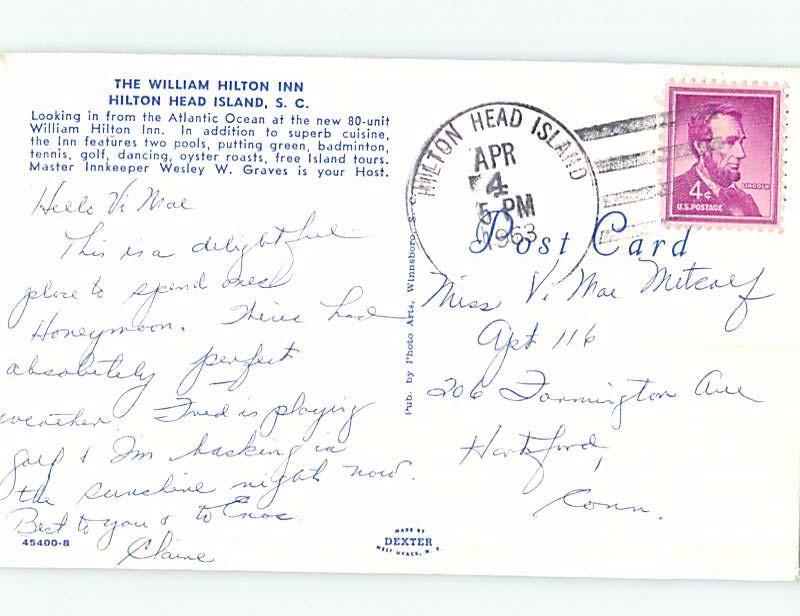 THE WILLIAM HILTON INN
HILTON HEAD ISLAND, S. C.
Looking in from the Atlantic Ocean at the new 80-unit
William Hilton Inn. In addition to superb cuisine,
the Inn features two pools, putting green, badminton,
tennis, golf, dancing, oyster roasts, free Island tours.
Master Innkeeper Wesley W. Graves is your Host.
Hello Vi Mae
This is a delightful
place to spend ones
Honeymoon. Weve had
absolutely perfect
weather. Fred is playing
golf & I'm basking in
the sunshine right now.
Best to you & to
Elaine
45400-B
Pub. by Photo Arts, Winnsboro, S. C.
MADE BY
DEXTER
WEST NYACK, N. Y.
HILTON HEAD ISLAND
APR
4
5 PM
1963
4¢
LINCOLN
U.S. POSTAGE
Post Card
Miss V. Mae Metcalf
Apt 116
206 Farmington Ave
Hartford,
Conn.